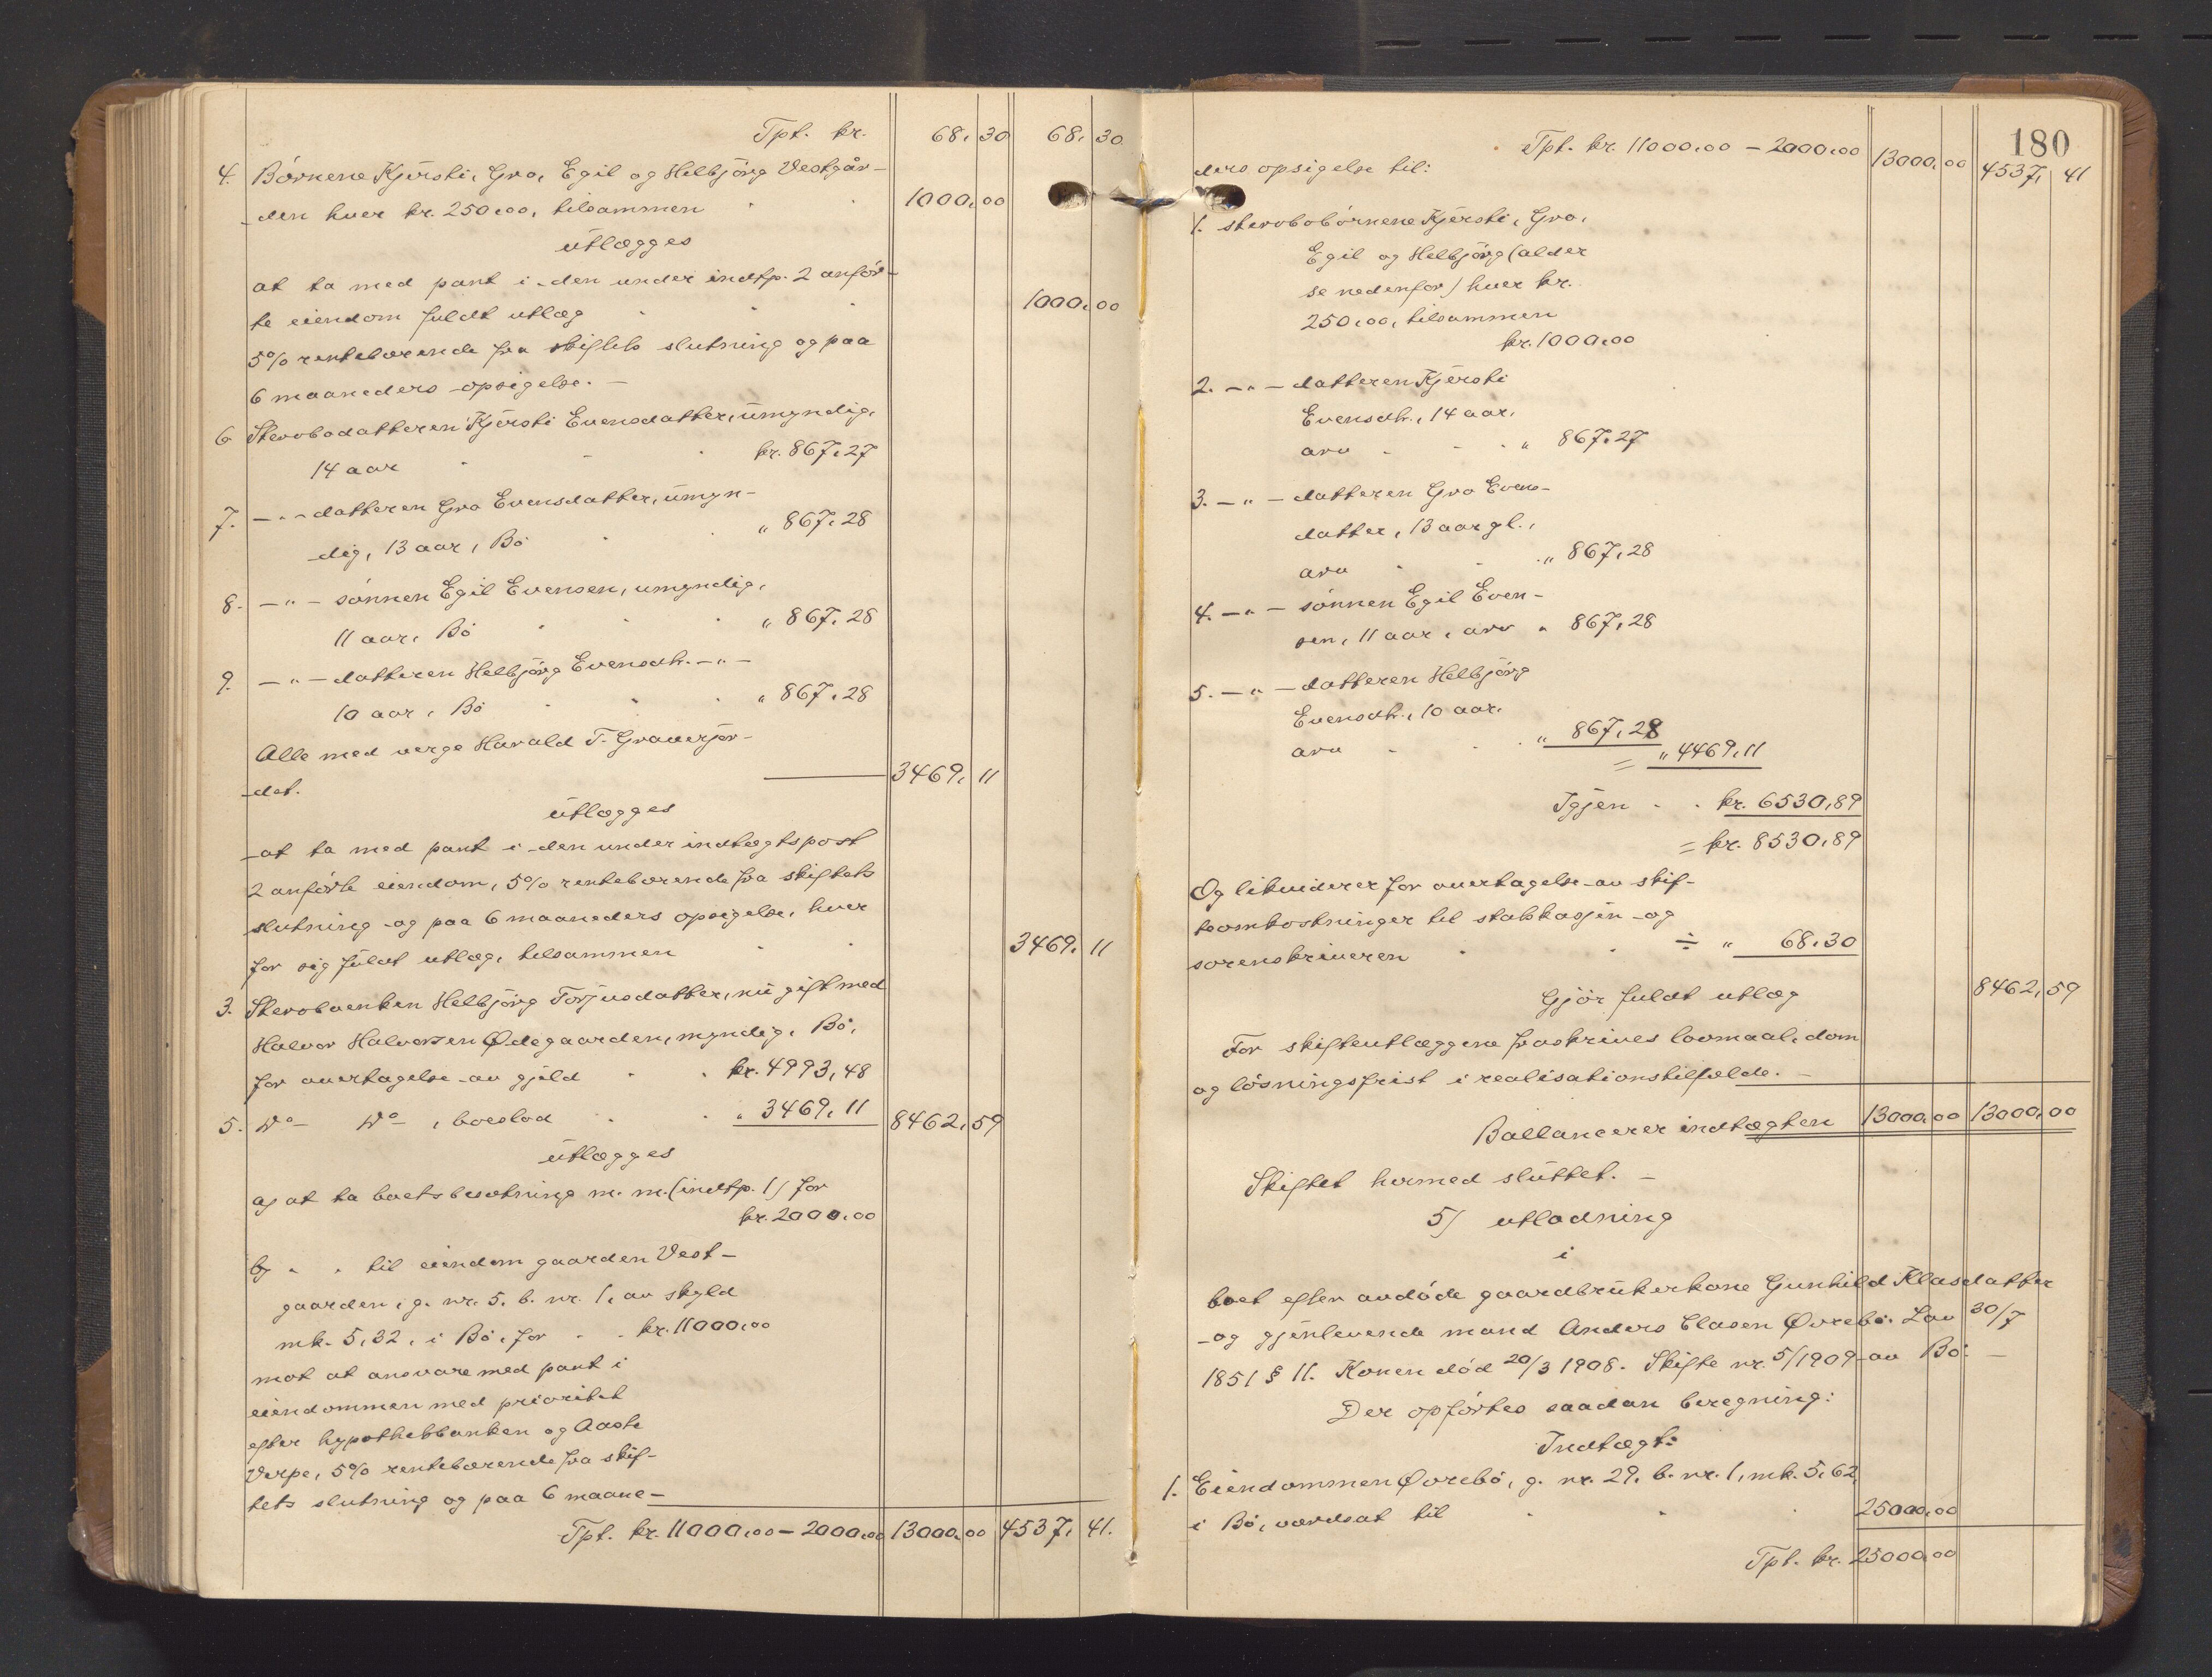 Tpt. kr. 68,30 68,30
4. Børnene Kjersti, Gro, Egil og Helbjørg Vestgår-
den hver kr. 250,00, tilsammen 1000,00
utlægges
at ta med pant i den under indtp. 2 anfør-
te eiendom fuldt utlæg 1000,00
5% rentebærende fra skiftets slutning og paa
6 maaneders opsigelse. —
6. Stervbodatteren Kjersti Evensdatter, umyndig,
14 aar kr. 867,27
7. — " — datteren Gro Evensdatter, umyn-
dig, 13 aar, Bø " 867,28
8. — " — sønnen Egil Evensen, umyndig,
11 aar, Bø " 867,28
9. — " — datteren Helbjørg Evensdtr. — " —
10 aar, Bø " 867,28
Alle med verge Harald T. Graverjor-
det. 3469,11
utlægges
at ta med pant i den under indtægtspost
2 anførte eiendom, 5% rentebærende fra skiftets
slutning og paa 6 maaneders opsigelse, hver
for sig fuldt utlæg, tilsammen 3469,11
3. Stervboenken Helbjørg Torjusdatter, nu gift med
Halvor Halvorsen Ødegaarden, myndig, Bø,
for overtagelse av gjeld kr. 4993,48
5. Do Do, boeslod " 3469,11 8462,59
utlægges
a) at ta boets besætning m. m. (indtp. 1) for
kr. 2000,00
b) " " til eiendom gaarden Vest-
gaarden, g. nr. 5, b. nr. 1, av skyld
mk. 5,32, i Bø, for kr. 11000,00
mot at ansvare med pant i
eiendommen med prioritet
efter hypothekbanken og Aaste
Verpe, 5% rentebærende fra skif-
tets slutning og paa 6 maane-
Tpt. kr. 11000,00 — 2000,00 13000,00 4537,41.
180
Tpt. kr. 11000,00 — 2000,00 13000,00 4537,41
ders opsigelse til:
1. stervbobørnene Kjersti, Gro,
Egil og Helbjørg (alder
se nedenfor) hver kr.
250,00, tilsammen
kr. 1000,00
2. — " — datteren Kjersti
Evensdtr., 14 aar,
arv " 867,27
3. — " — datteren Gro Evens-
datter, 13 aar gl.,
arv " 867,28
4. — " — sønnen Egil Even-
sen, 11 aar, arv " 867,28
5. — " — datteren Helbjørg
Evensdtr., 10 aar,
arv " 867,28
= " 4469,11
Igjen kr. 6530,89
= kr. 8530,89
Og likviderer for overtagelse av skif-
teomkostninger til statskassen og
sorenskriveren ÷ " 68,30
Gjør fuldt utlæg 8462,59
For skifteutlæggene fraskrives lovmaal, dom
og løsningsfrist i realisationstilfælde. —
Ballancerer indtægten 13000,00 13000,00
Skiftet hermed sluttet. —
5) utlodning
i
boet efter avdøde gaardbrukerkone Gunhild Klasdatter
og gjenlevende mand Anders Clasen Øvrebø. Lov 30/7
1851 § 11. Konen død 20/3 1908. Skifte nr. 5/1909 av Bø. —
Der opførtes saadan beregning:
Indtægt:
1. Eiendommen Øvrebø, g. nr. 29, b. nr. 1, mk. 5,62,
i Bø, værdsat til 25000,00
Tpt. kr. 25000,00